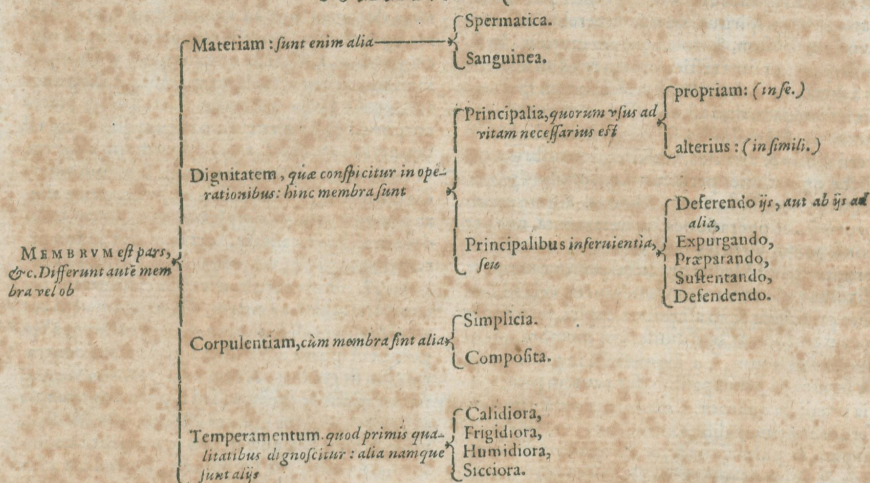 MEMBRVM est pars,
&c. Differunt autē mem
bra vel ob
Materiam: sunt enim alia
Spermatica.
Sanguinea.
Dignitatem, quæ conspicitur in ope-
rationibus: hinc membra sunt
Principalia, quorum vsus ad
vitam necessarius est
propriam: (in se.)
alterius: (in simili.)
Principalibus inseruientia,
seu
Deferendo ijs, aut ab ijs ad
alia,
Expurgando,
Præparando,
Sustentando,
Defendendo.
Corpulentiam, cùm membra sint alia
Simplicia.
Composita.
Temperamentum. quod primis qua-
litatibus dignoscitur: alia namque
sunt alijs
Calidiora,
Frigidiora,
Humidiora,
Sicciora.